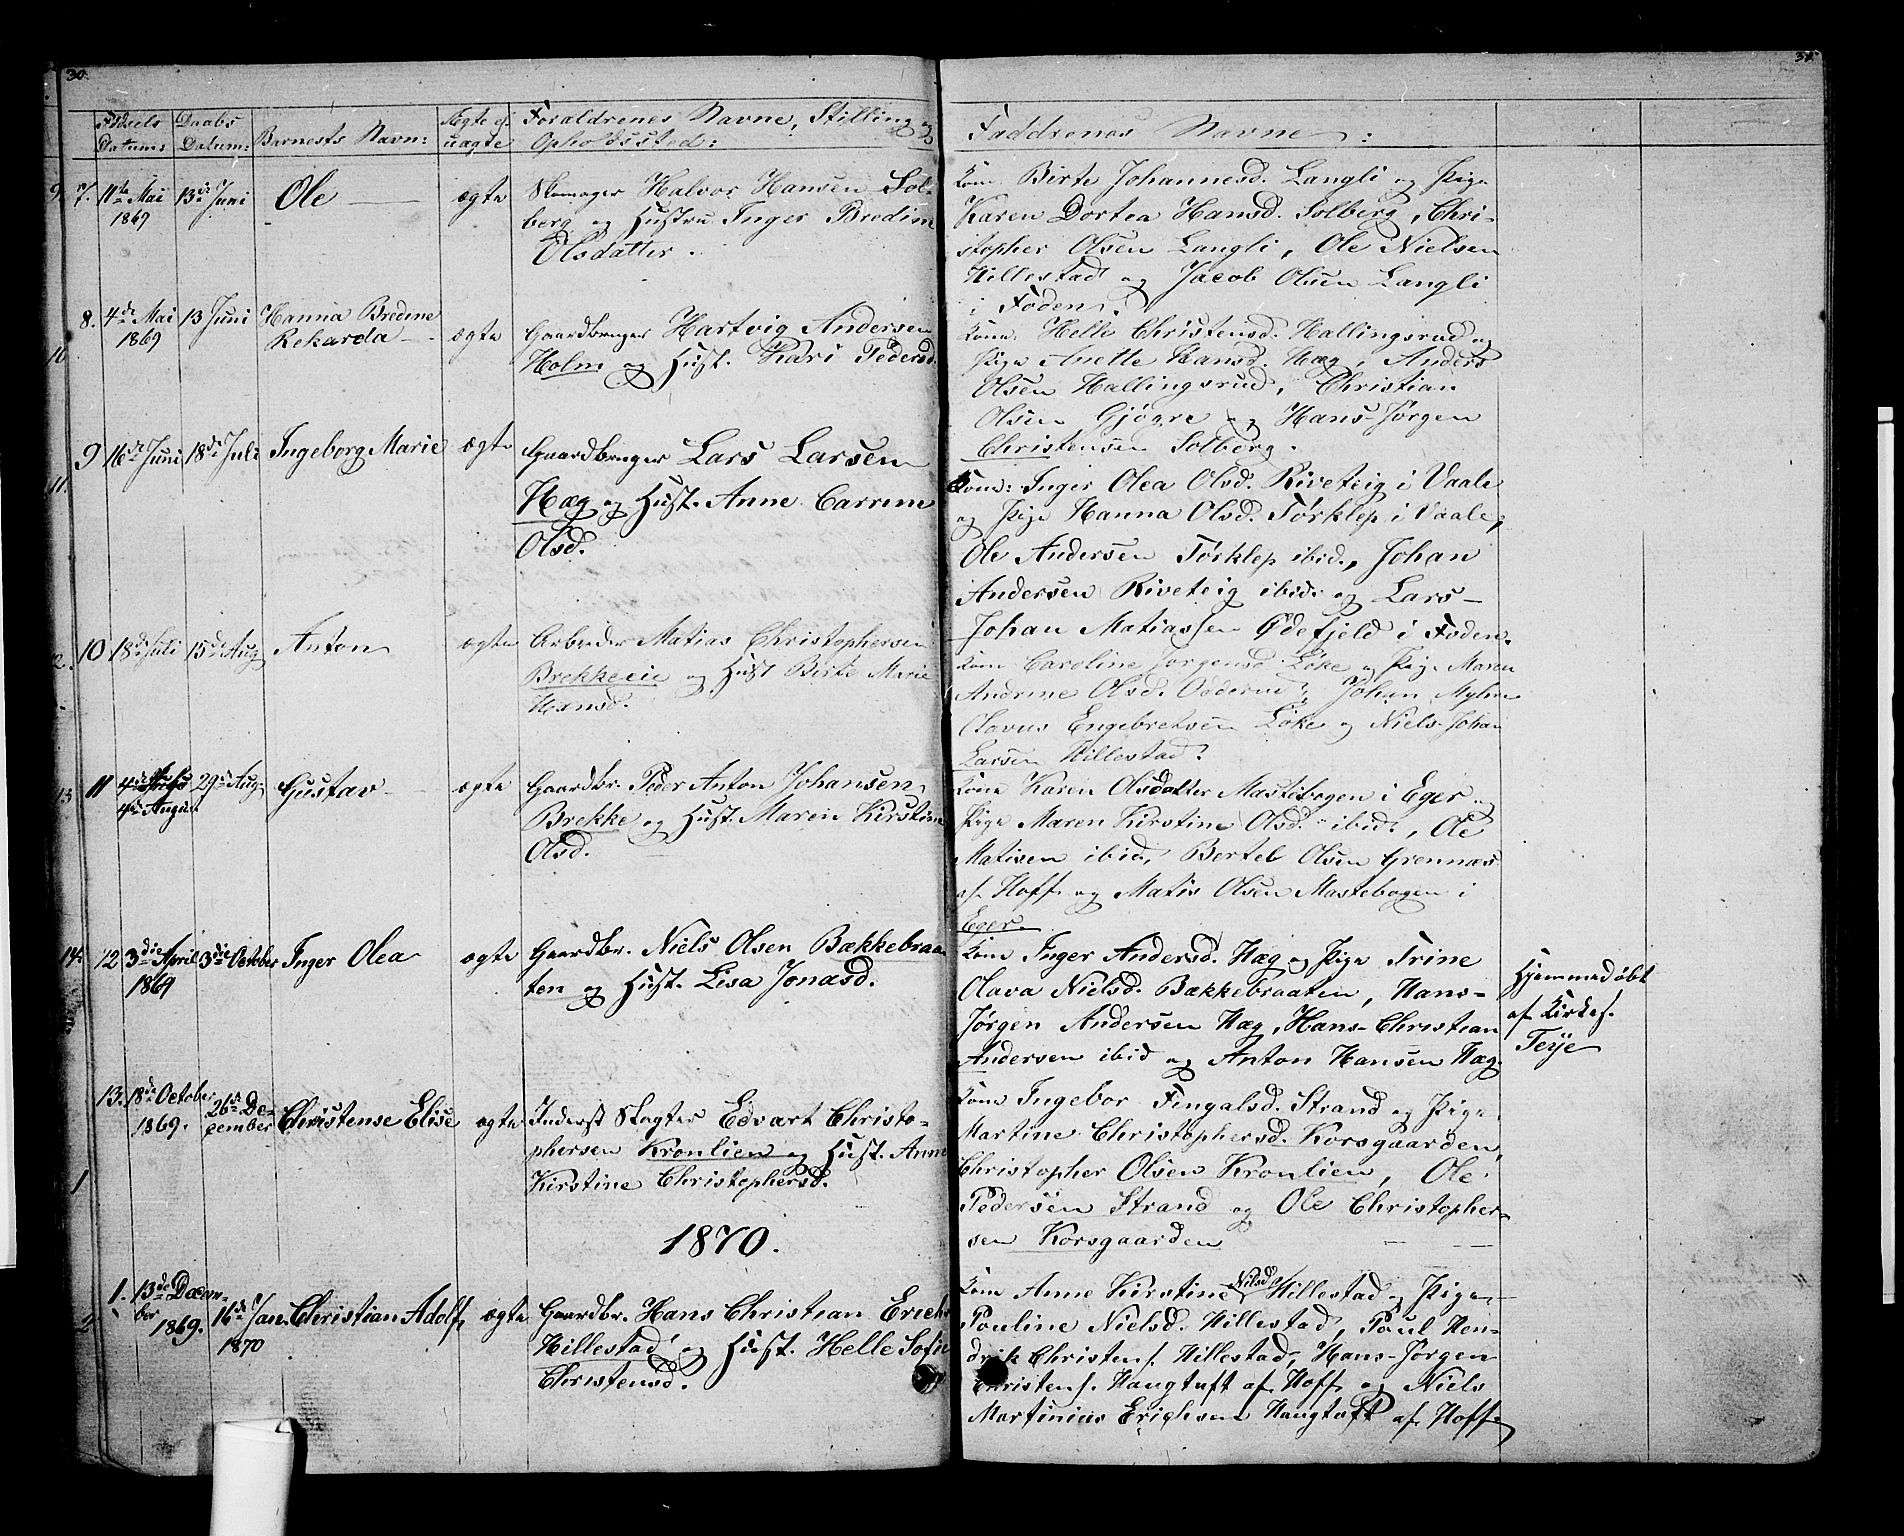 30.
Fødsels Datum:
Daabs Datum:
Barnests Navn:
Ægte el. uægte
Foraldrenes Navne, Stilling og
Opholdssted:
7. 11te Mai 1869
13de Juni
Ole
ægte
Skomager Halvor Hansen Sol-
berg og Hustru Inger Bredine
Olsdatter.
8. 4de Mai 1869
13 Juni
Hanna Bredine
Rekarda
ægte
Gaardbruger Hartvig Andersen
Holm og Hust. Kari Pedersd.
9 16de Juni
18de Juli
Ingeborg Marie
ægte
Gaardbruger Lars Larsen
Hæg og Hust. Anne Carrine
Olsd.
10 18de Juli
15de Aug
Anton
ægte
Arbeider Matias Christophersen
Brekkeeie og Hust Birte Marie
Hansd.
11 4de August
29de Aug.
Gustav
ægte
Gaardbr. Peder Anton Johansen
Brekke og Hust. Maren Kirstine
Olsd.
12 3die April 1869
3die October
Inger Olea
ægte
Gaardbr. Niels Olsen Bækkebraa-
ten og Hust. Lisa Jonasd.
13. 18de October 1869.
26de De-
cember
Christense Elise
ægte
Inderst Skogter Edvart Christo-
phersen Kronlien og Hust. Anne
Kirstine Christophersd.
1870.
1. 13de Decem-
ber 1869.
16de Jan.
1870
Christian Adolf
ægte
Gaardbr. Hans Christian Erichs
Hillestad og Hust. Helle Sofie
Christensd.
31
Faddrenes Navne:
Kone Birte Johannesd. Langli og Pige
Karen Dortea Hansd. Solberg, Chri-
stopher Olsen Langli, Ole Nielsen
Hillestad og Jacob Olsen Langli
i Foden.
Kone Helle Christensd. Hallingsrud og
Pige Anette Hansd. Hæg, Anders
Olsen Hallingsrud, Christian
Olsen Gjøgre og Hans-Jørgen
Christensen Solberg.
Kone: Inger Olea Olsd. Riveteig i Vaale
og Pige Hanna Olsd. Tørklep i Vaale,
Ole Andersen Tørklep ibid., Johan
Andersen Riveteig ibid: og Lars-
Johan Matiassen Ødefjeld i Foden.
Kone Caroline Jørgensd. Løke og Pige Maren
Andrine Olsd. Odderud, Johan Myhre
Olavus Engebretsen Løke og Niels-Johan
Larsen Hillestad.
Kone Karen Olsdatter Mastebogen i Eger og
Pige Maren Kirstine Olsd. ibid:, Ole
Matisen ibid, Bertel Olsen Grennæs
af Hoff og Matis Olsen Mastebogen i
Eger.
Kone Inger Andersd. Hæg og Pige Trine
Olava Nielsd. Bækkebraaten, Hans-
Jørgen Andersen Hæg, Hans-Christian
Andersen ibid og Anton Hansen Hæg.
Hjemmedøbt
af Kirkes.
Terje
Kone Ingebor Fingalsd. Strand og Pige
Martine Christophersd. Korsgaarden,
Christopher Olsen Kronlien, Ole
Pedersen Strand og Ole Christopher-
sen Korsgaarden
Kone Anne Kirstine Nilsd. Hillestad og Pige
Pouline Nielsd. Hillestad, Poul Hen-
drik Christens. Hillestad, Hans-Jørgen
Christens. Haugtuft af Hoff og Niels
Martinius Erichsen Haugtuft af Hoff